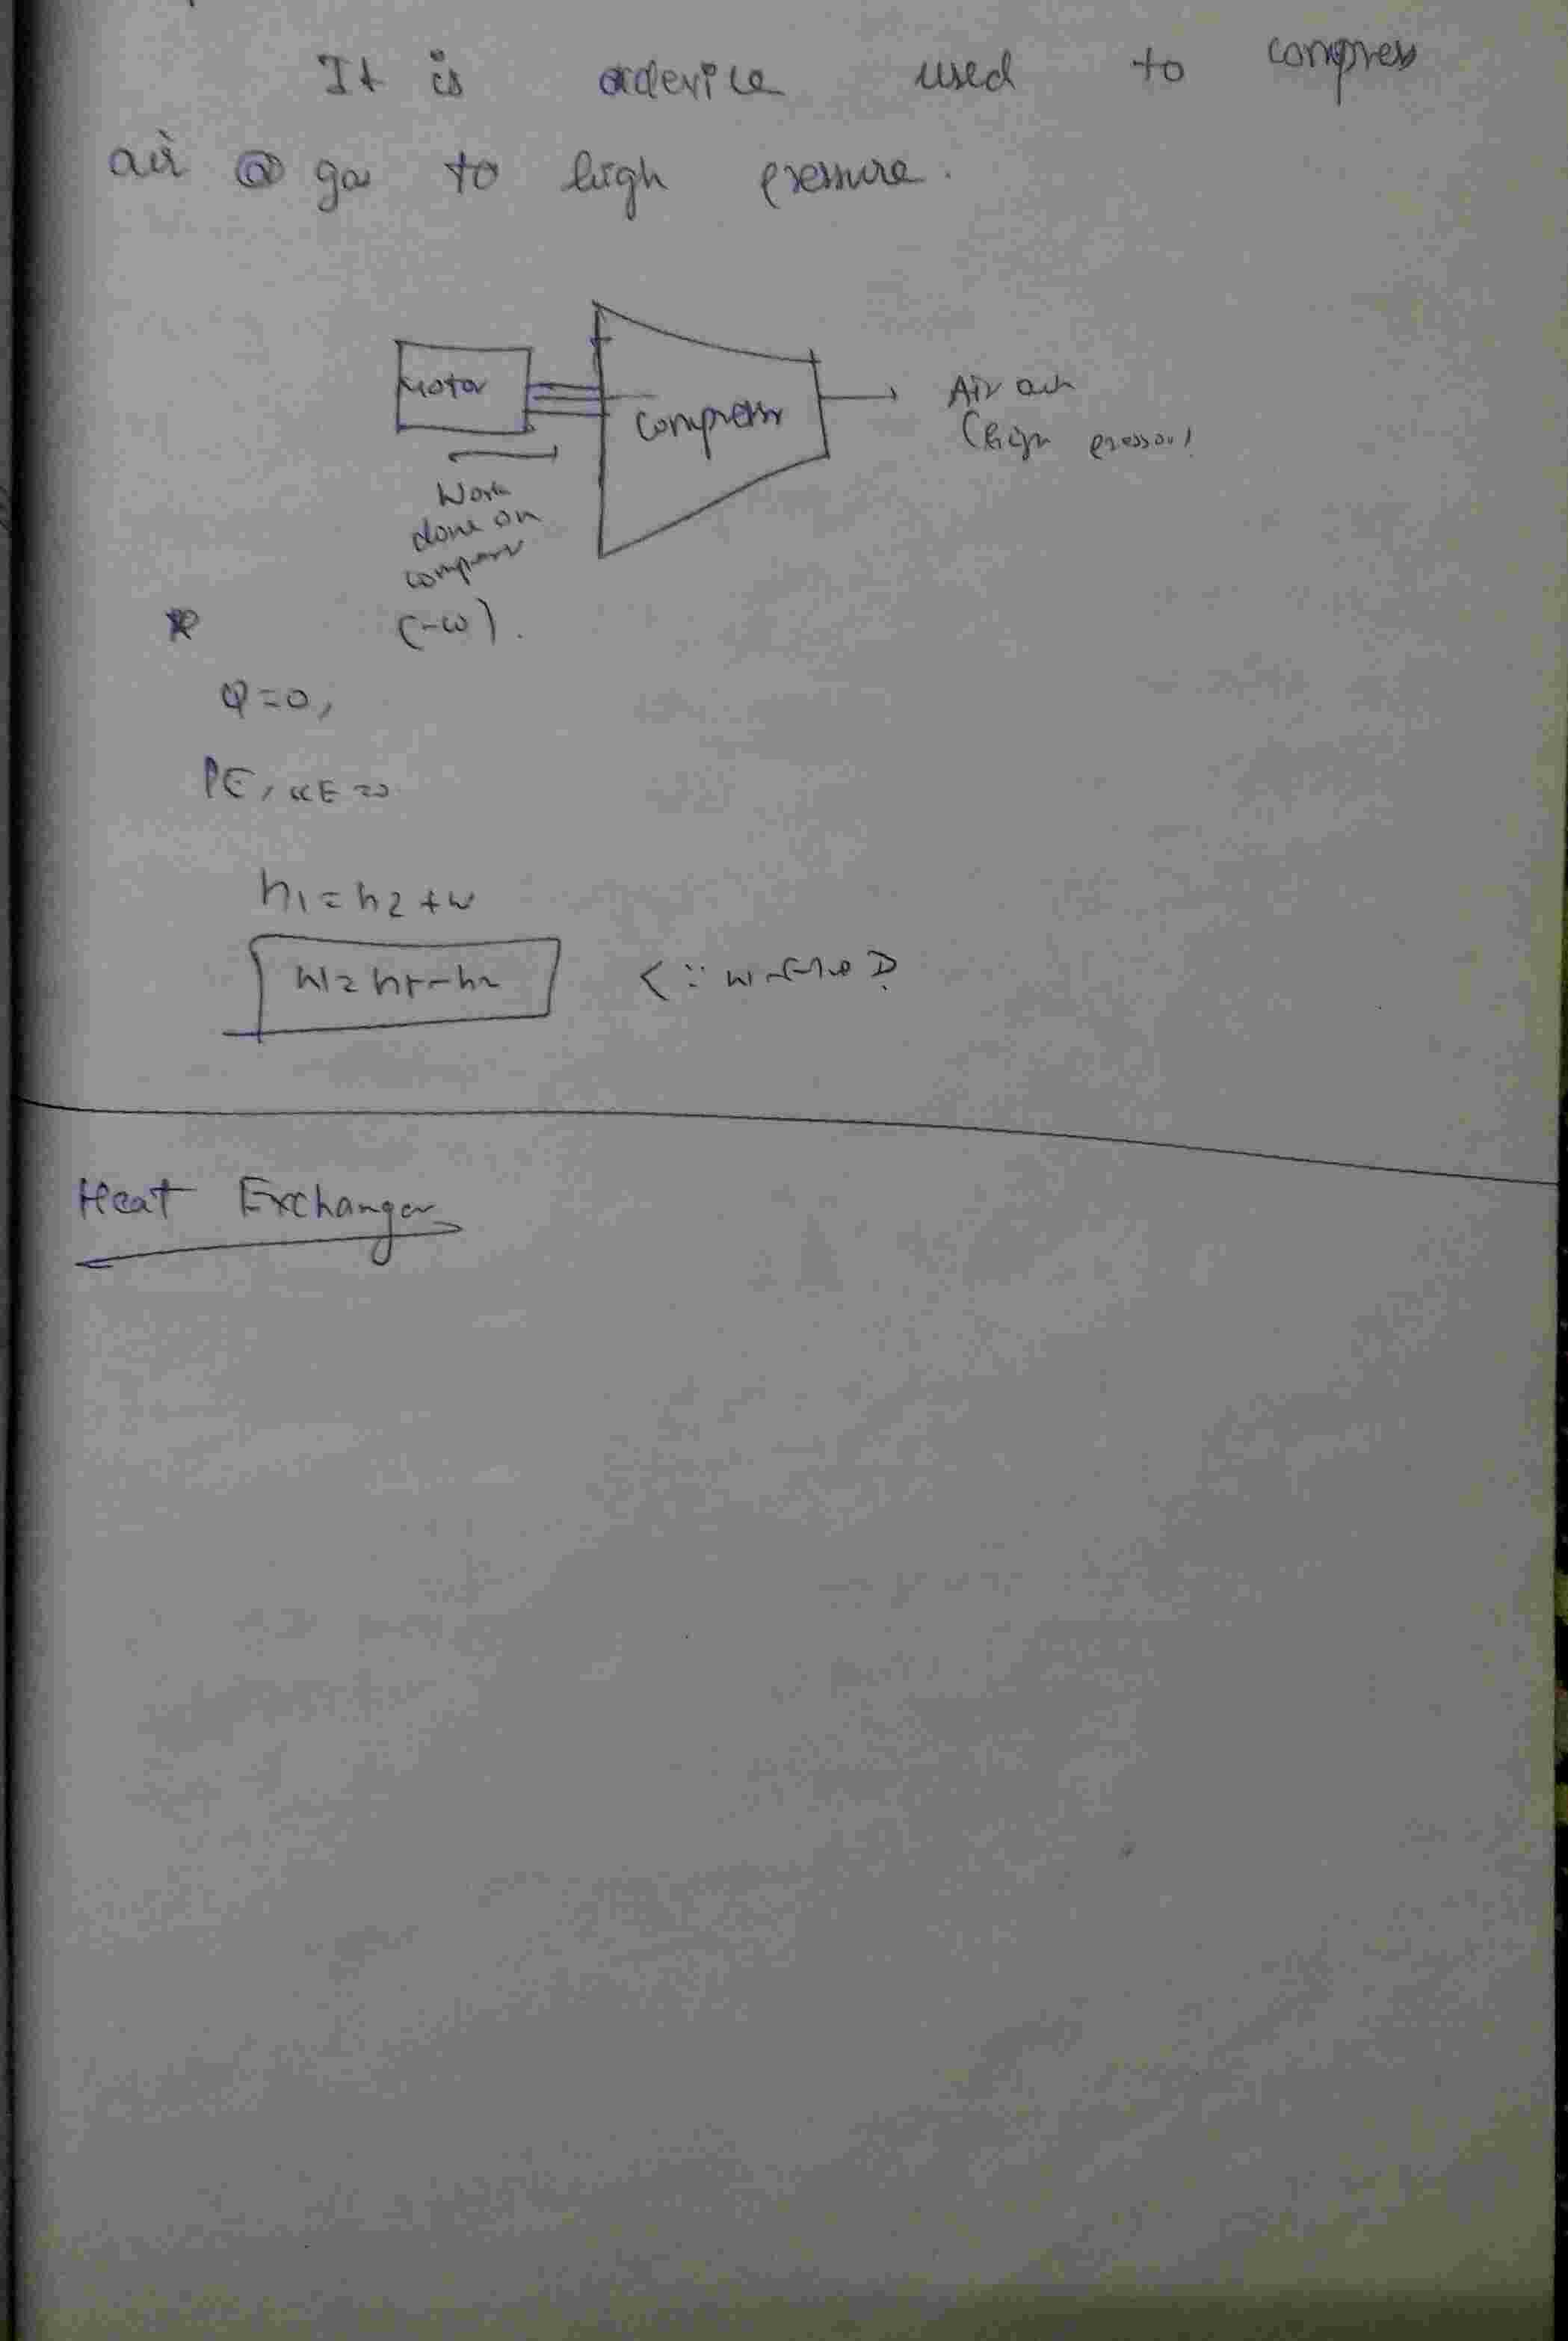 It is a device used to compress
air @ gas to high pressure.
Motor
Compressor
Air out
(high pressor)
Work
done on
compressor
(-w).
Q=0,
PE, KE=0
h1=h2+w
W=h1-h2
Heat Exchanger